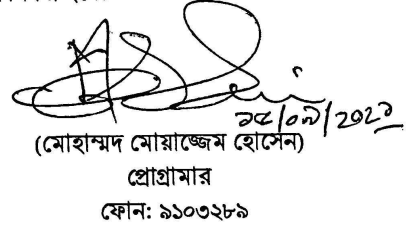 ১৫/০৯/২০২১
(মোহাম্মদ মোয়াজ্জেম হোসেন)
প্রোগ্রামার
ফোন: ৯১০৩২৮৯